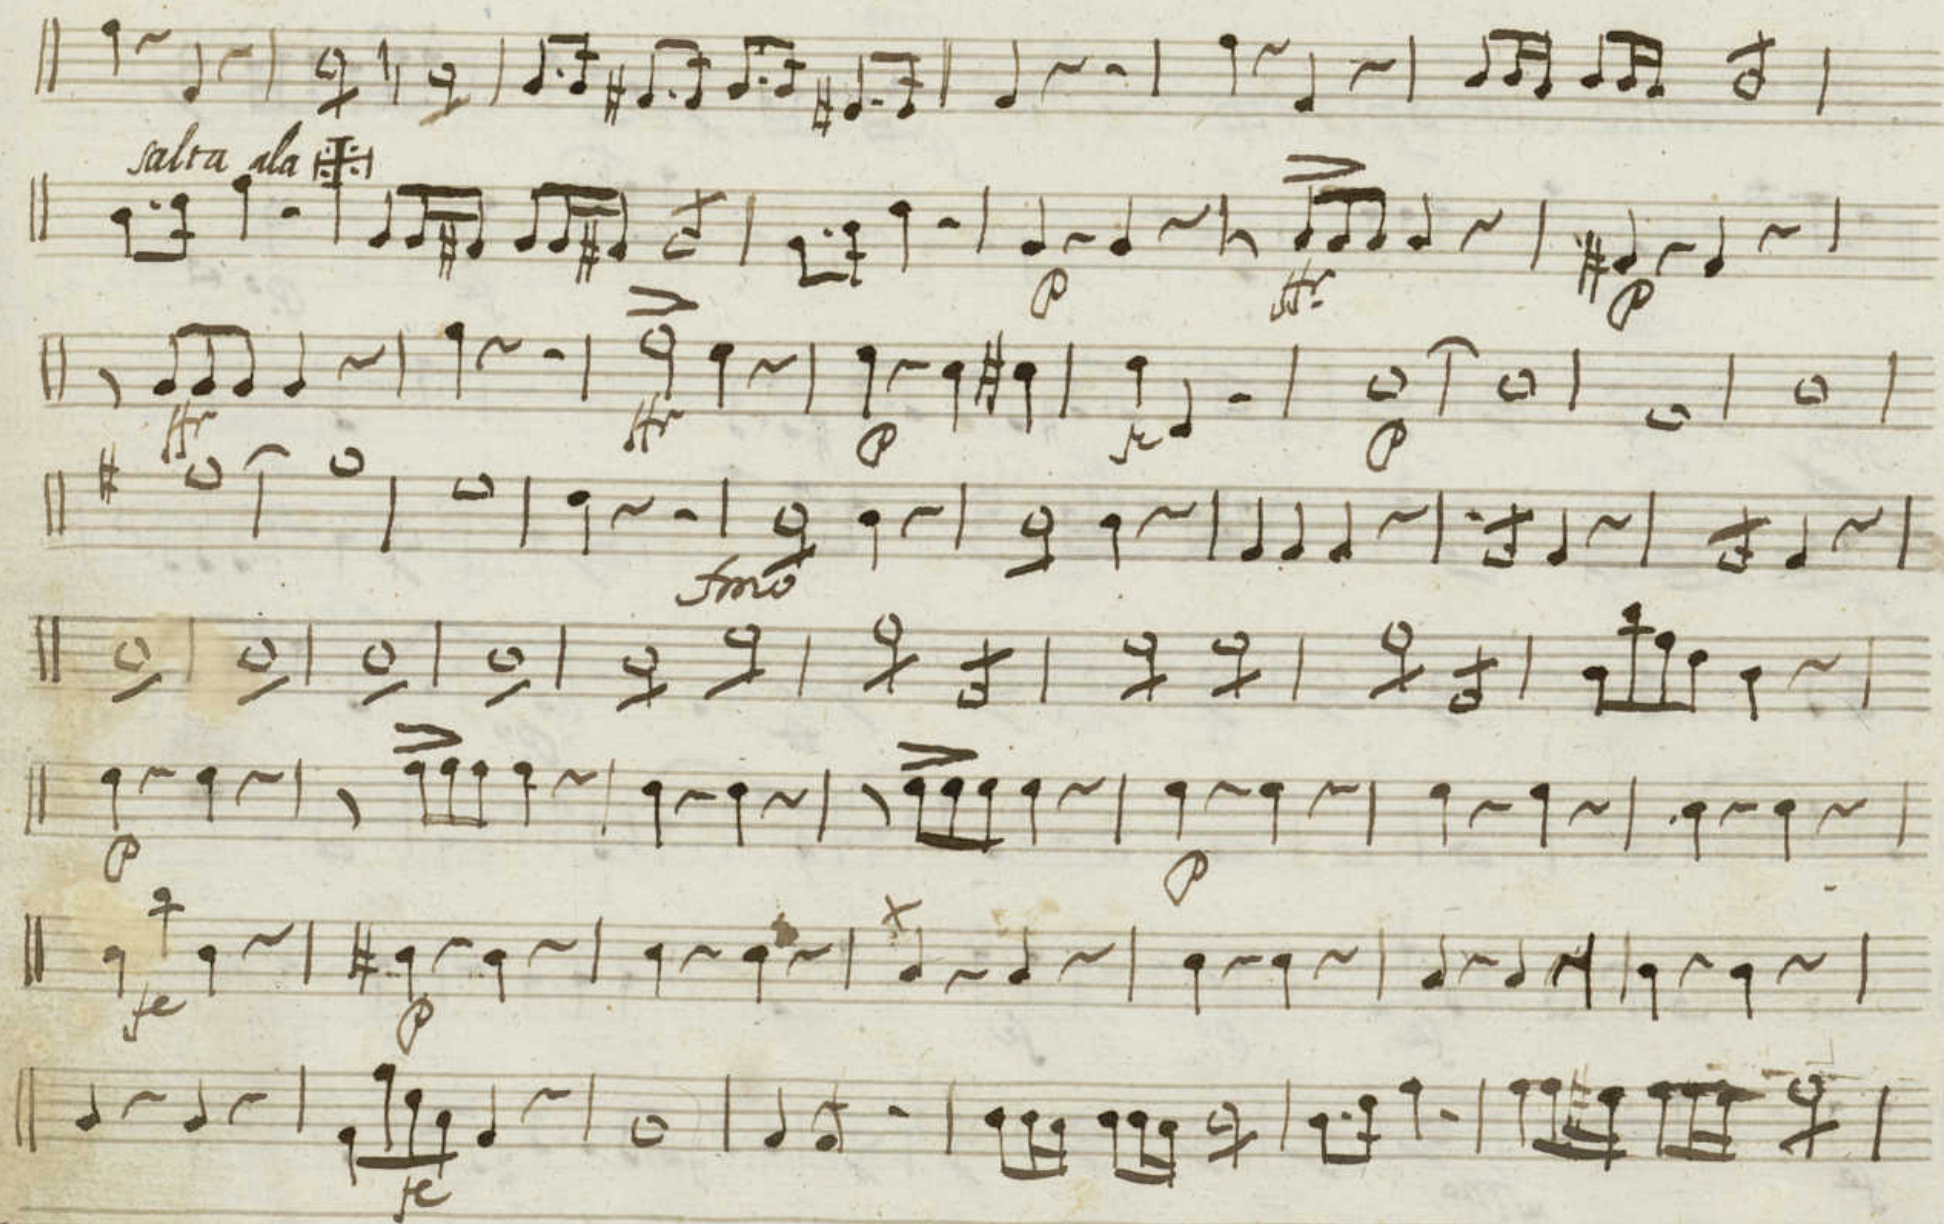 salta ala
P Hr P
Hr Hr P fe P
fmo
P P
fe P
fe